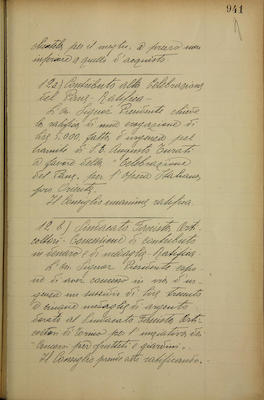 941
chiedibile, per il meglio, a prezzo non
inferiore a quello d'acquisto.
12 a) Contributo alla Celebrazione
del Pane - Ratifica -
L'On. Signor Presidente chiede
la ratifica di una erogazione di
Lire 5.000, fatta d'urgenza pel
tramite di S.E. Augusto Turati
a favore della "Celebrazione
del Pane, per l'Opera Italiana
pro Oriente.
Il Consiglio unanime ratifica.
12 b) Sindacato Fascista Orti-
coltori - Concessione di contributo
in denaro e di medaglie - Ratifica
L'On. Signor Presidente espo-
ne di aver concesso in via d'ur-
genza un sussidio di Lire trecento
ed una medaglia di argento
dorato al Sindacato Fascista Orti-
coltori di Torino per l'iniziativa del
Concorso per frutteti e giardini.
Il Consiglio prende atto ratificando.